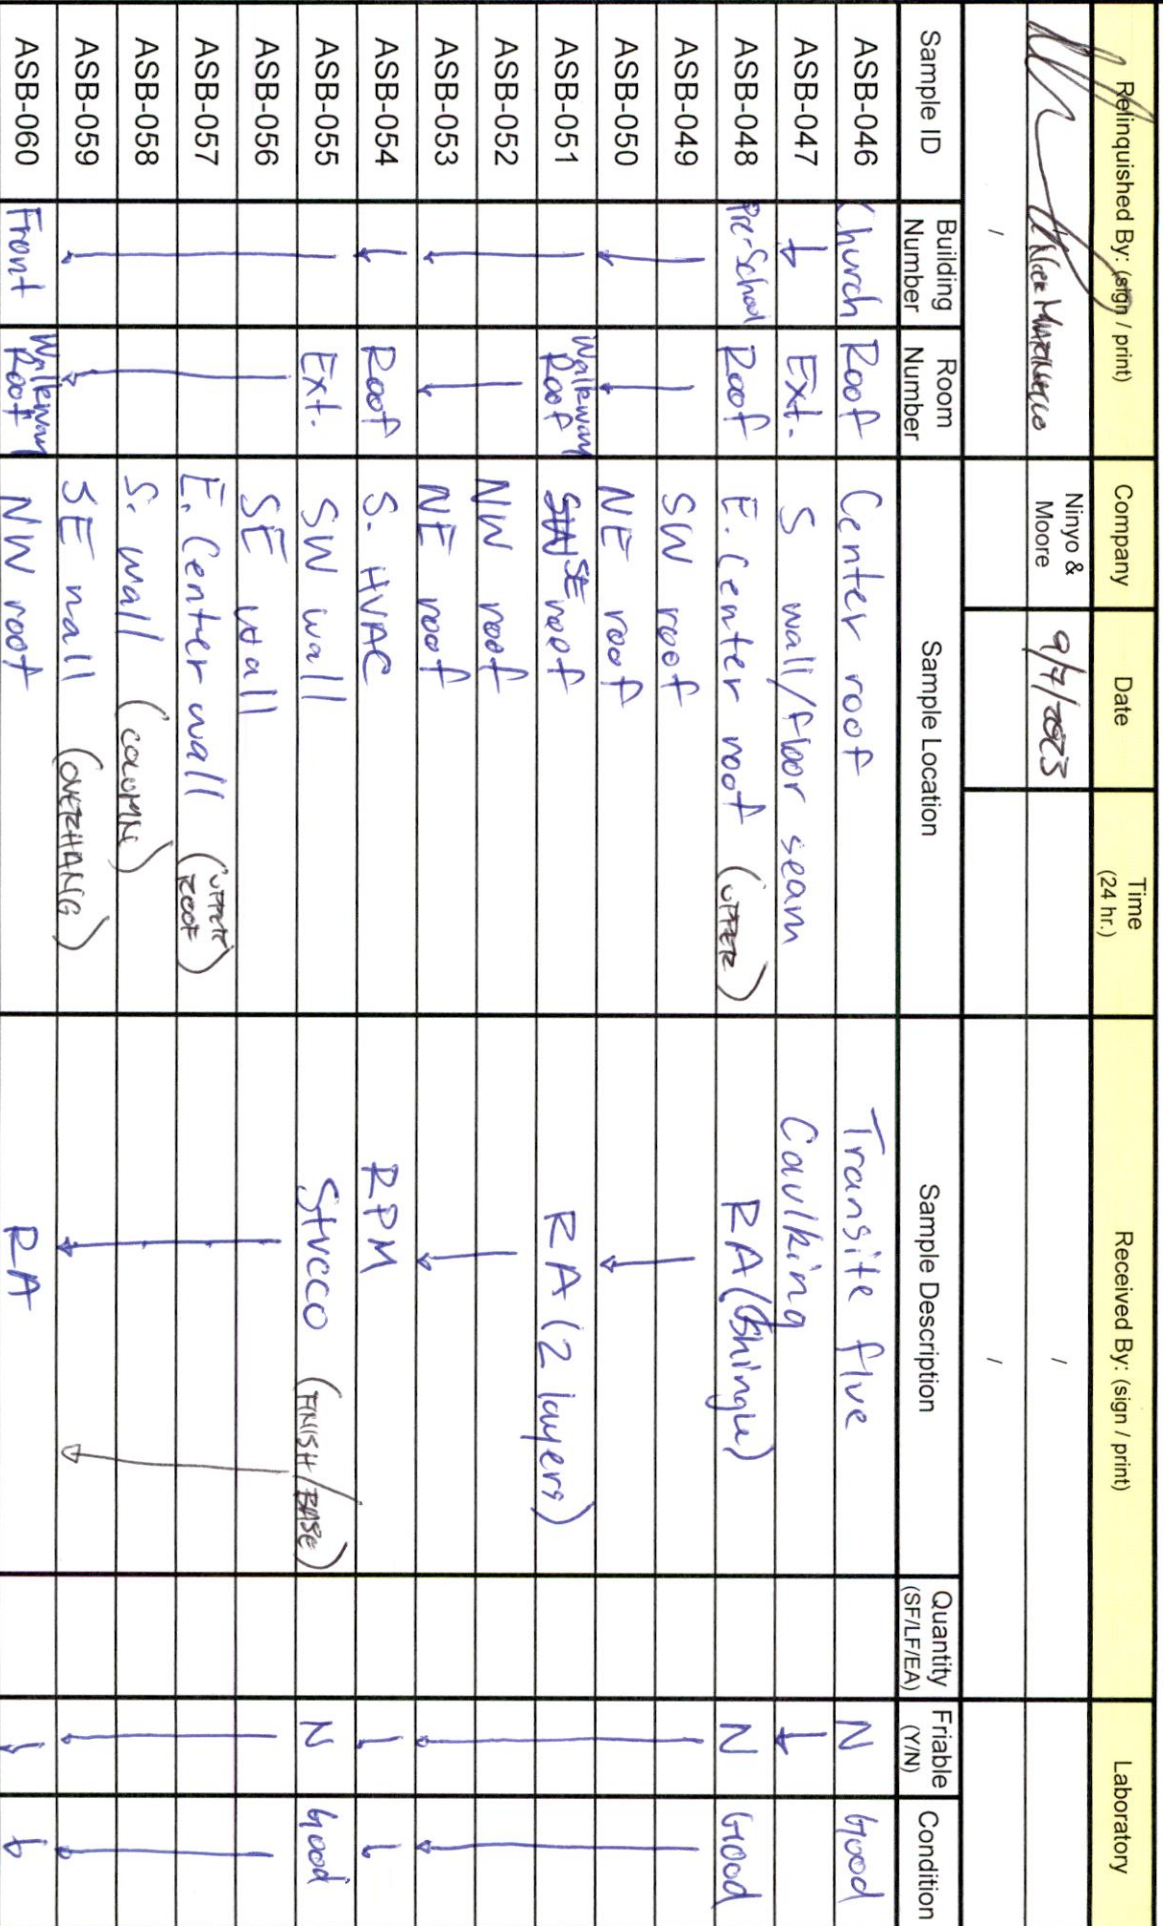 Relinquished By: (sign / print) Company Date Time (24 hr.) Received By: (sign / print) Laboratory
Ninyo & Moore 9/7/2023 /
/ /
Sample ID Building Number Room Number Sample Location Sample Description Quantity (SF/LF/EA) Friable (Y/N) Condition
ASB-046 Church Roof Center roof Transite flue N Good
ASB-047 ↓ Ext. S wall/floor seam Caulking ↓
ASB-048 Pre-School Roof E. Center roof (UPPER) RA (Shingle) N Good
ASB-049 SW roof
ASB-050 NE roof
ASB-051 Walkway Roof SE roof RA (2 layers)
ASB-052 NW roof
ASB-053 NE roof
ASB-054 ↓ Roof S. HVAC RPM ↓ ↓
ASB-055 Ext. SW wall Stucco (FINISH/BASE) N Good
ASB-056 SE wall
ASB-057 E. Center wall (UPPER ROOF)
ASB-058 S. wall (COLUMN)
ASB-059 SE wall (OVERHANG)
ASB-060 Front Walkway Roof NW roof RA ↓ ↓